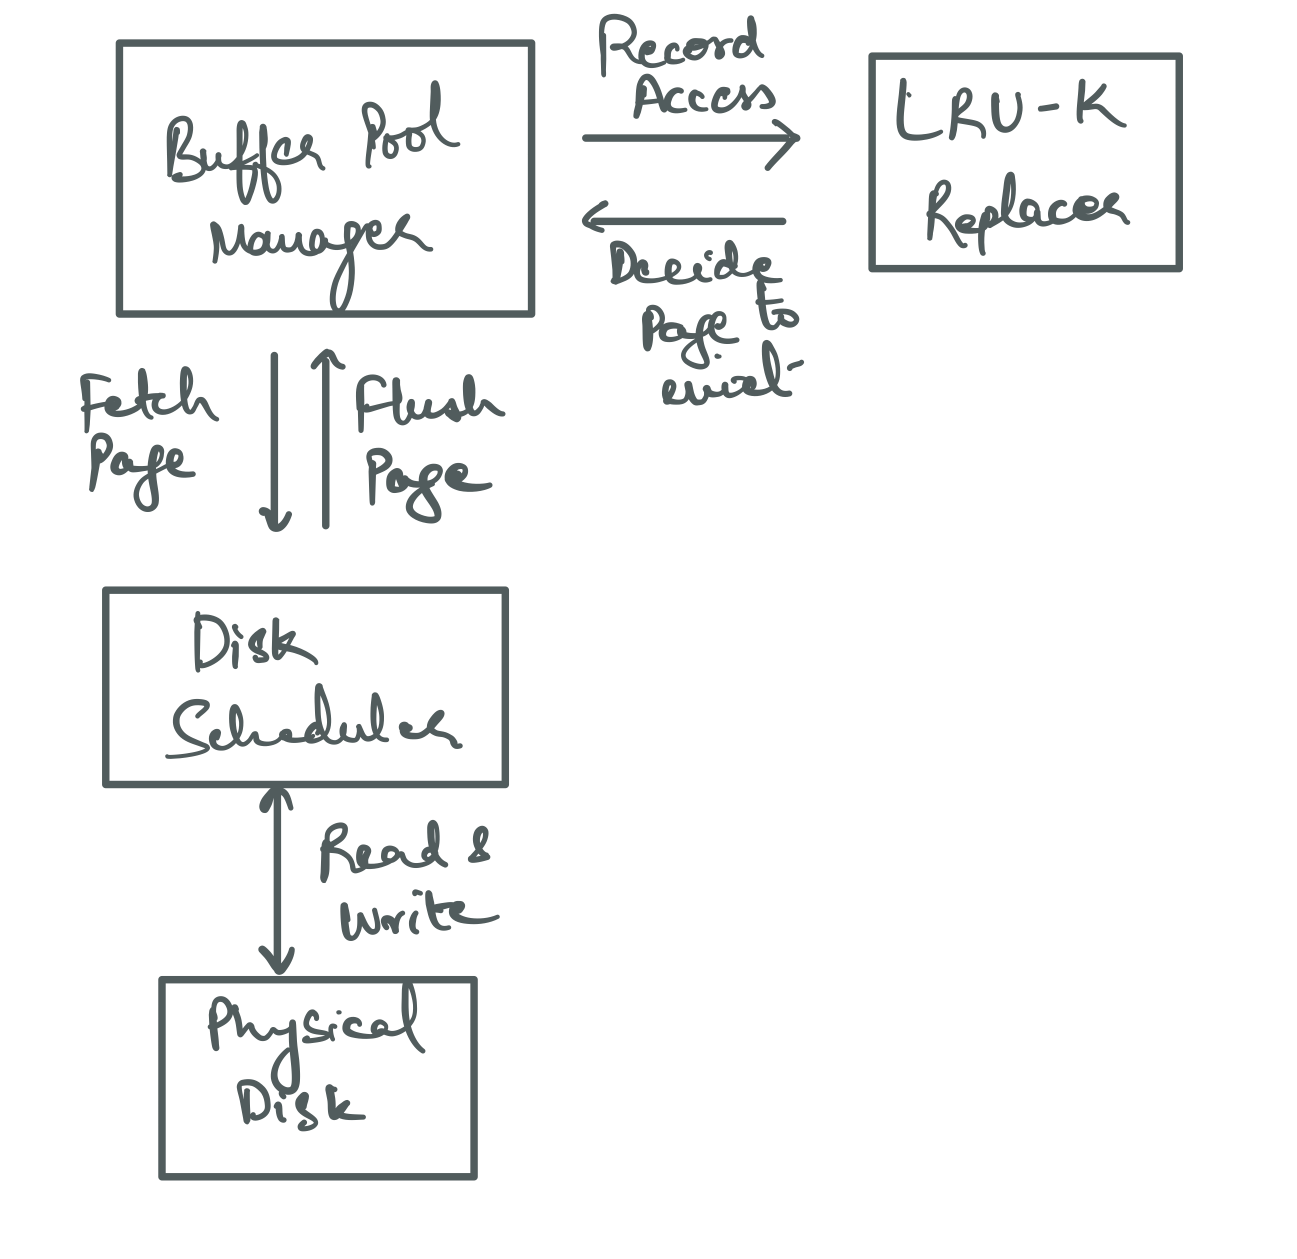 Buffer Pool
Manager
Record
Access
LRU-K
Replacer
Decide
Page to
evict
Fetch
Page
Flush
Page
Disk
Scheduler
Read &
Write
Physical
Disk